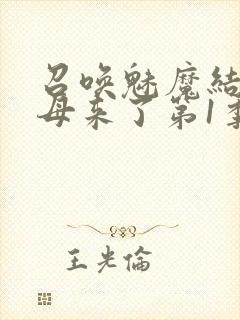 召喚魅魔結
母来了第1季
王光倫